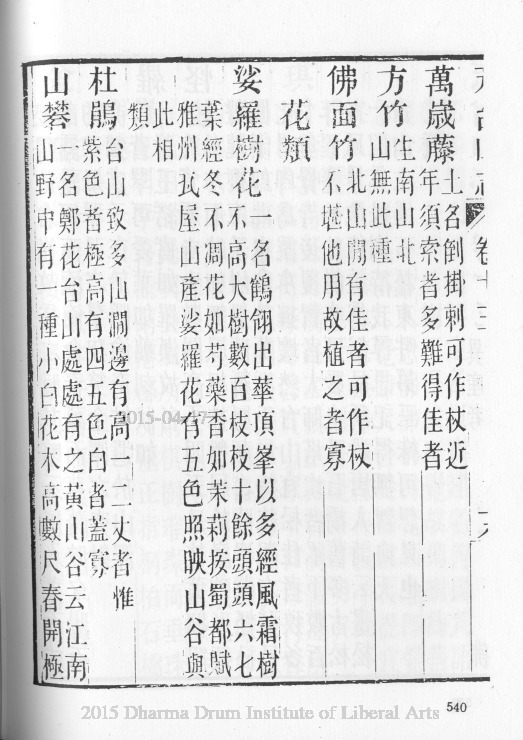 卷十三
萬歲藤土名倒掛刺可作杖近
年須索者多難得佳者
方竹生南山北
山無此種
佛面竹北山間有佳者可作杖
不堪他用故植之者寡
花類
娑羅樹花一名鶴翎出華頂峯以多經風霜樹
不高大樹數百枝枝餘頭頭六七
葉經冬不凋花如芍藥香如茉莉按蜀都賦
雅州瓦屋山產娑羅花有五色照映山谷與
此相
類
杜鵑台山致多山澗邊有高一丈者惟
紫色者極高有四五色白者蓋寡
山礬一名鄭花台山處處有之黃山谷云江南
山野中有一種小白花木高數尺春開極
2015-04-17
540
2015 Dharma Drum Institute of Liberal Arts